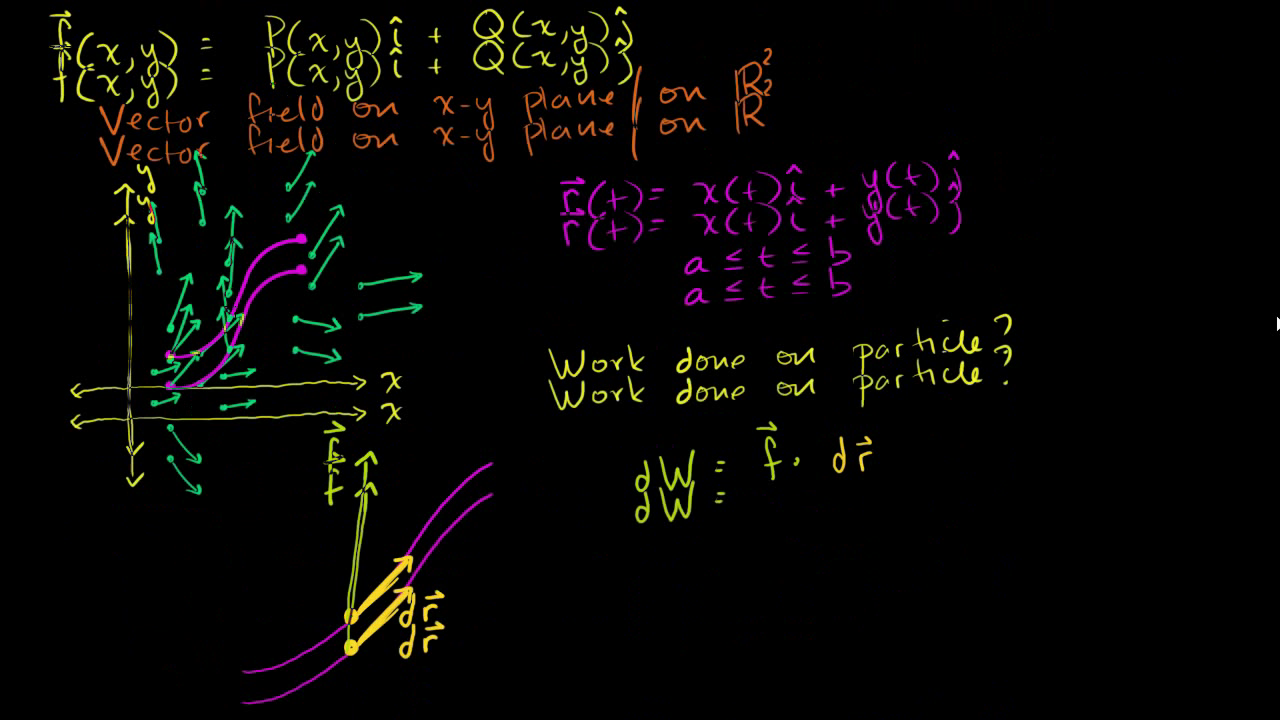 f⃗(x,y) = P(x,y)î + Q(x,y)ĵ
f(x,y) = P(x,y)î + Q(x,y)ĵ
Vector field on x-y plane / on ℝ²
Vector field on x-y plane / on ℝ²
y
y
r⃗(t) = x(t)î + y(t)ĵ
r⃗(t) = x(t)î + y(t)ĵ
a ≤ t ≤ b
a ≤ t ≤ b
Work done on particle?
Work done on particle?
x
x
f⃗
f
dW = f⃗ · dr⃗
dW =
dr⃗
dr⃗